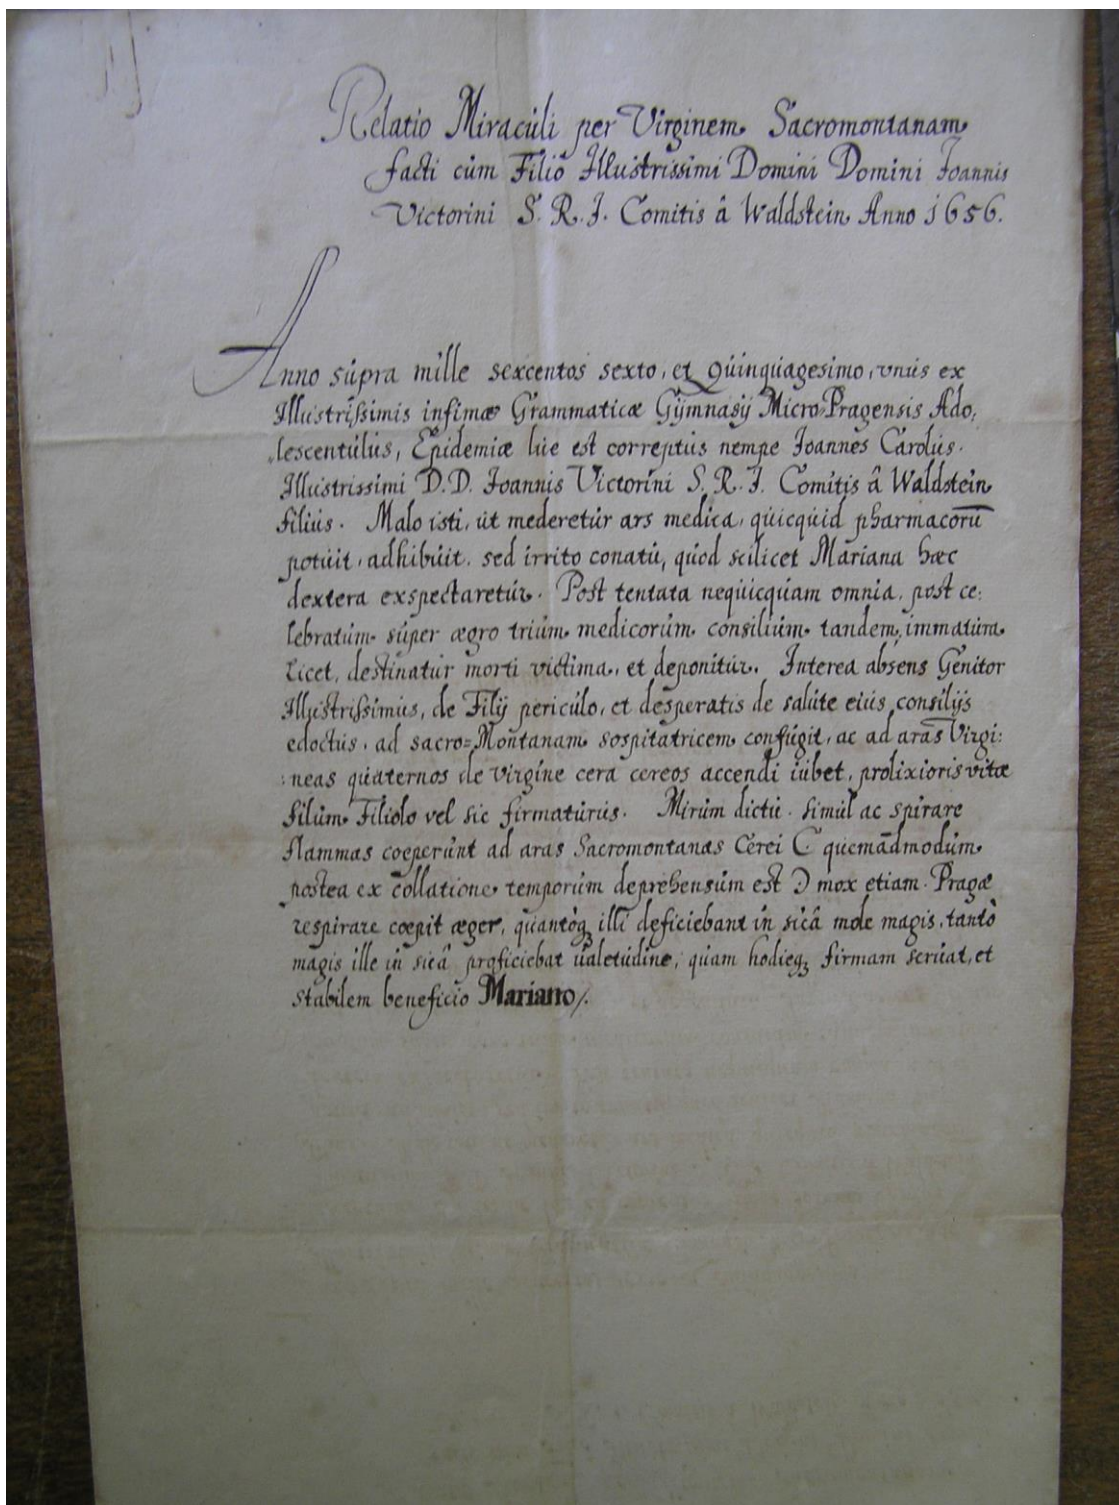 Relatio Miraculi per Virginem Sacromontanam
facti cum Filio Illustrissimi Domini Domini Joannis
Victorini S. R. J. Comitis â Waldstein Anno 1656.
Anno supra mille sexcentos sexto, et Quinquagesimo, vnus ex
Illustrissimis infimæ Grammaticæ Gymnasij Micro-Pragensis Ado:
lescentulus, Epidemiæ lue est correptus nempe Joannes Carolus.
Illustrissimi D.D. Joannis Victorini S. R. J. Comitis â Waldstein
filius. Malo isti, ut mederetur ars medica, quicquid pharmacorū
potuit, adhibuit. sed irrito conatu, quod scilicet Mariana hæc
dextera exspectaretur. Post tentata nequicquam omnia, post ce:
lebratum super ægro trium medicorum consilium tandem, immatura
licet, destinatur morti victima, et deponitur. Interea absens Genitor
Illustrissimus, de Filij periculo, et desperatis de salute eius consilijs
edoctus, ad sacro=Montanam sospitatricem confugit, ac ad aras Virgi:
:neas quaternos de virgine cera cereos accendi iubet, prolixioris vitæ
filum Filiolo vel sic firmaturus. Mirum dictu. simul ac spirare
flammas coeperunt ad aras Sacromontanas Cerei C quemadmodum
postea ex collatione temporum deprehensum est Ɔ mox etiam Pragæ
respirare coepit æger, quantoq̨ illi deficiebant in sicâ mole magis, tantò
magis ille in sicâ proficiebat ualetudine, quam hodieq̨ firmam seruat, et
stabilem beneficio Mariano/.